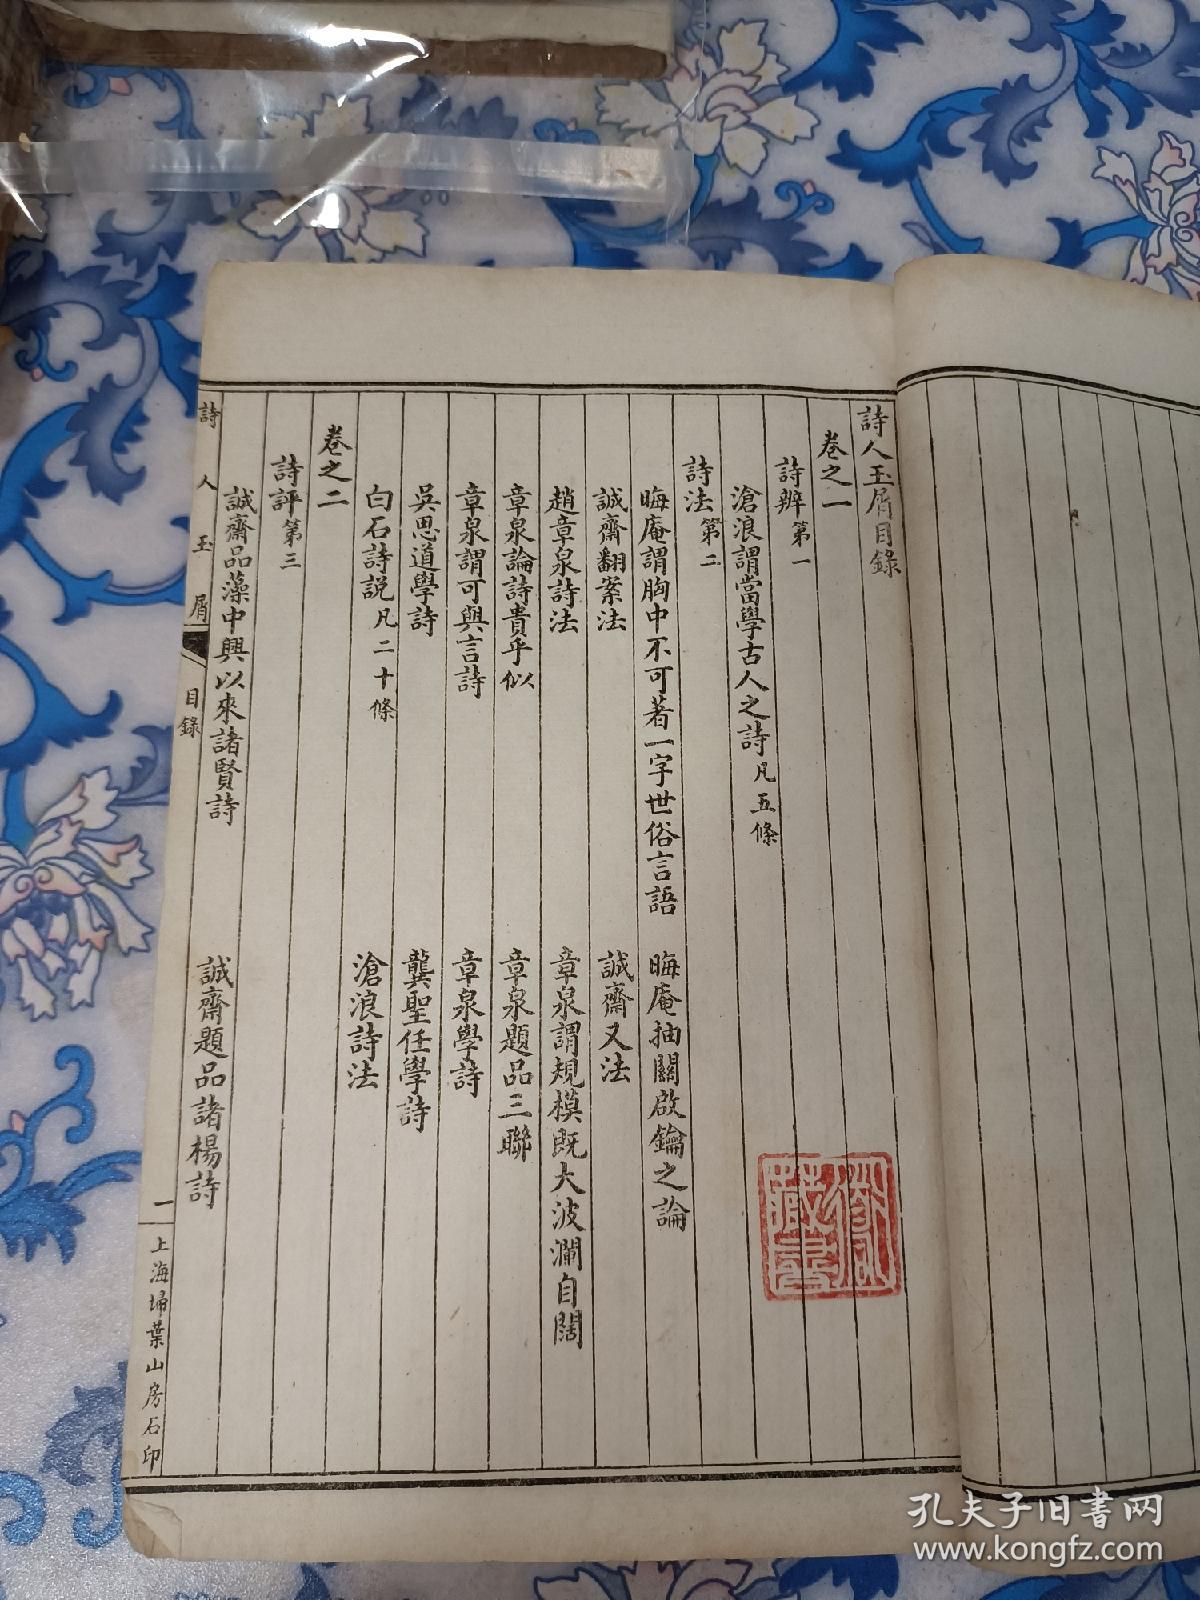 詩人玉屑目錄
卷之一
詩辨第一
滄浪謂當學古人之詩凡五條
詩法第二
晦庵謂胸中不可著一字世俗言語　晦庵抽關啟鑰之論
誠齋翻案法　誠齋又法
趙章泉詩法　章泉謂規模既大波瀾自闊
章泉論詩貴乎似　章泉題品三聯
章泉謂可與言詩　章泉學詩
吳思道學詩　龔聖任學詩
白石詩説凡二十條　滄浪詩法
卷之二
詩評第三
誠齋品藻中興以來諸賢詩　誠齋題品諸楊詩
詩人玉屑　目錄　一　上海埽葉山房石印
藏書
孔夫子旧书网
www.kongfz.com